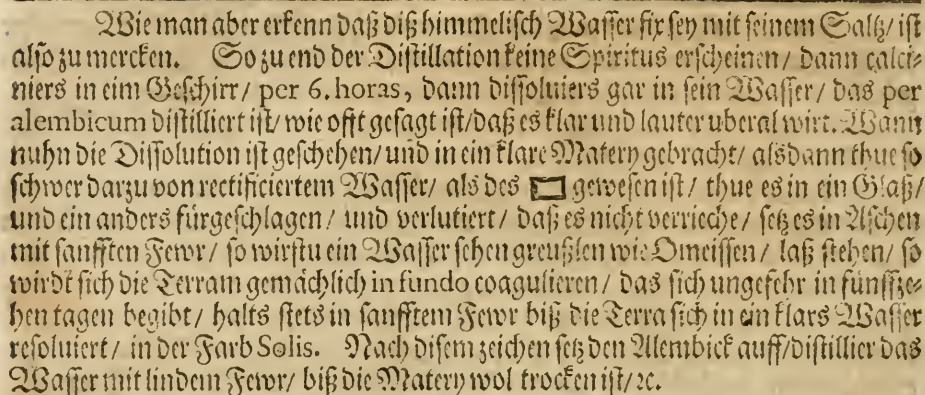 Wie man aber erkenn daß diß himmelisch Wasser fix sey mit seinem Saltz/ ist
also zu mercken. So zu end der Distillation keine Spiritus erscheinen/ dann calci⸗
niers in eim Geschirr/ per 6. horas, dann dissoluiers gar in sein Wasser/ das per
alembicum distilliert ist/ wie offt gesagt ist/ daß es klar und lauter uberal wirt. Wann
nuhn die Dissolution ist geschehen/ und in ein klare Matery gebracht/ alsdann thue so
schwer darzu von rectificiertem Wasser/ als des gewesen ist/ thue es in ein Glaß/
und ein anders fürgeschlagen/ und verlutiert/ daß es nicht verrieche/ setz es in Aschen
mit sanfften Fewr/ so wirstu ein Wasser sehen greußlen wie Omeissen/ laß stehen/ so
wirdt sich die Terram gemächlich in fundo coagulieren/ das sich ungefehr in fünffze⸗
hen tagen begibt/ halts stets in sanfftem Fewr biß die Terra sich in ein klars Wasser
resoluiert/ in der Farb Solis. Nach disem zeichen setz den Alembick auff/ distillier das
Wasser mit lindem Fewr/ biß die Matery wol trocken ist/ ꝛc.